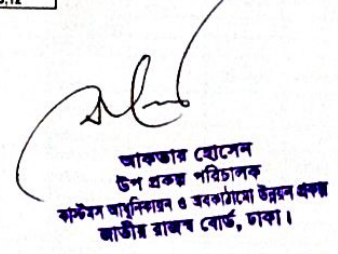 আকতার হোসেন
উপ প্রকল্প পরিচালক
কাস্টমস আধুনিকায়ন ও অবকাঠামো উন্নয়ন প্রকল্প
জাতীয় রাজস্ব বোর্ড, ঢাকা।